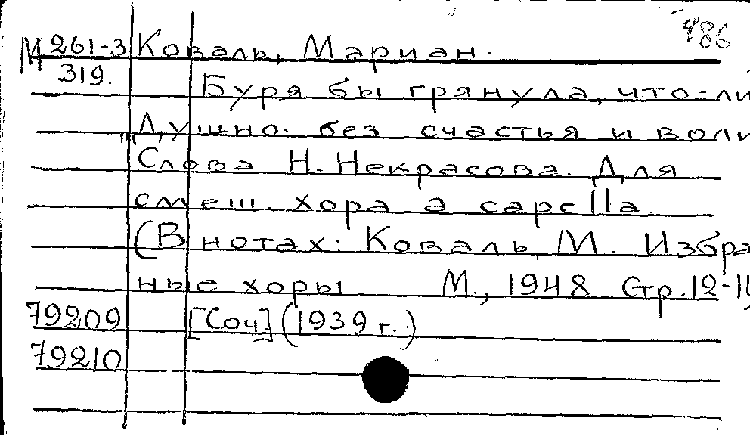 486
М 261-3 Коваль, Мариан.
319.
Буря бы грянула, что-ли
Душно. без счастья и воли
Слова Н. Некрасова. Для
смеш. хора a capella
(В нотах: Коваль, М. Избра
ные хоры М., 1948 Стр. 12-
79209 [Соч] (1939 г.)
79210